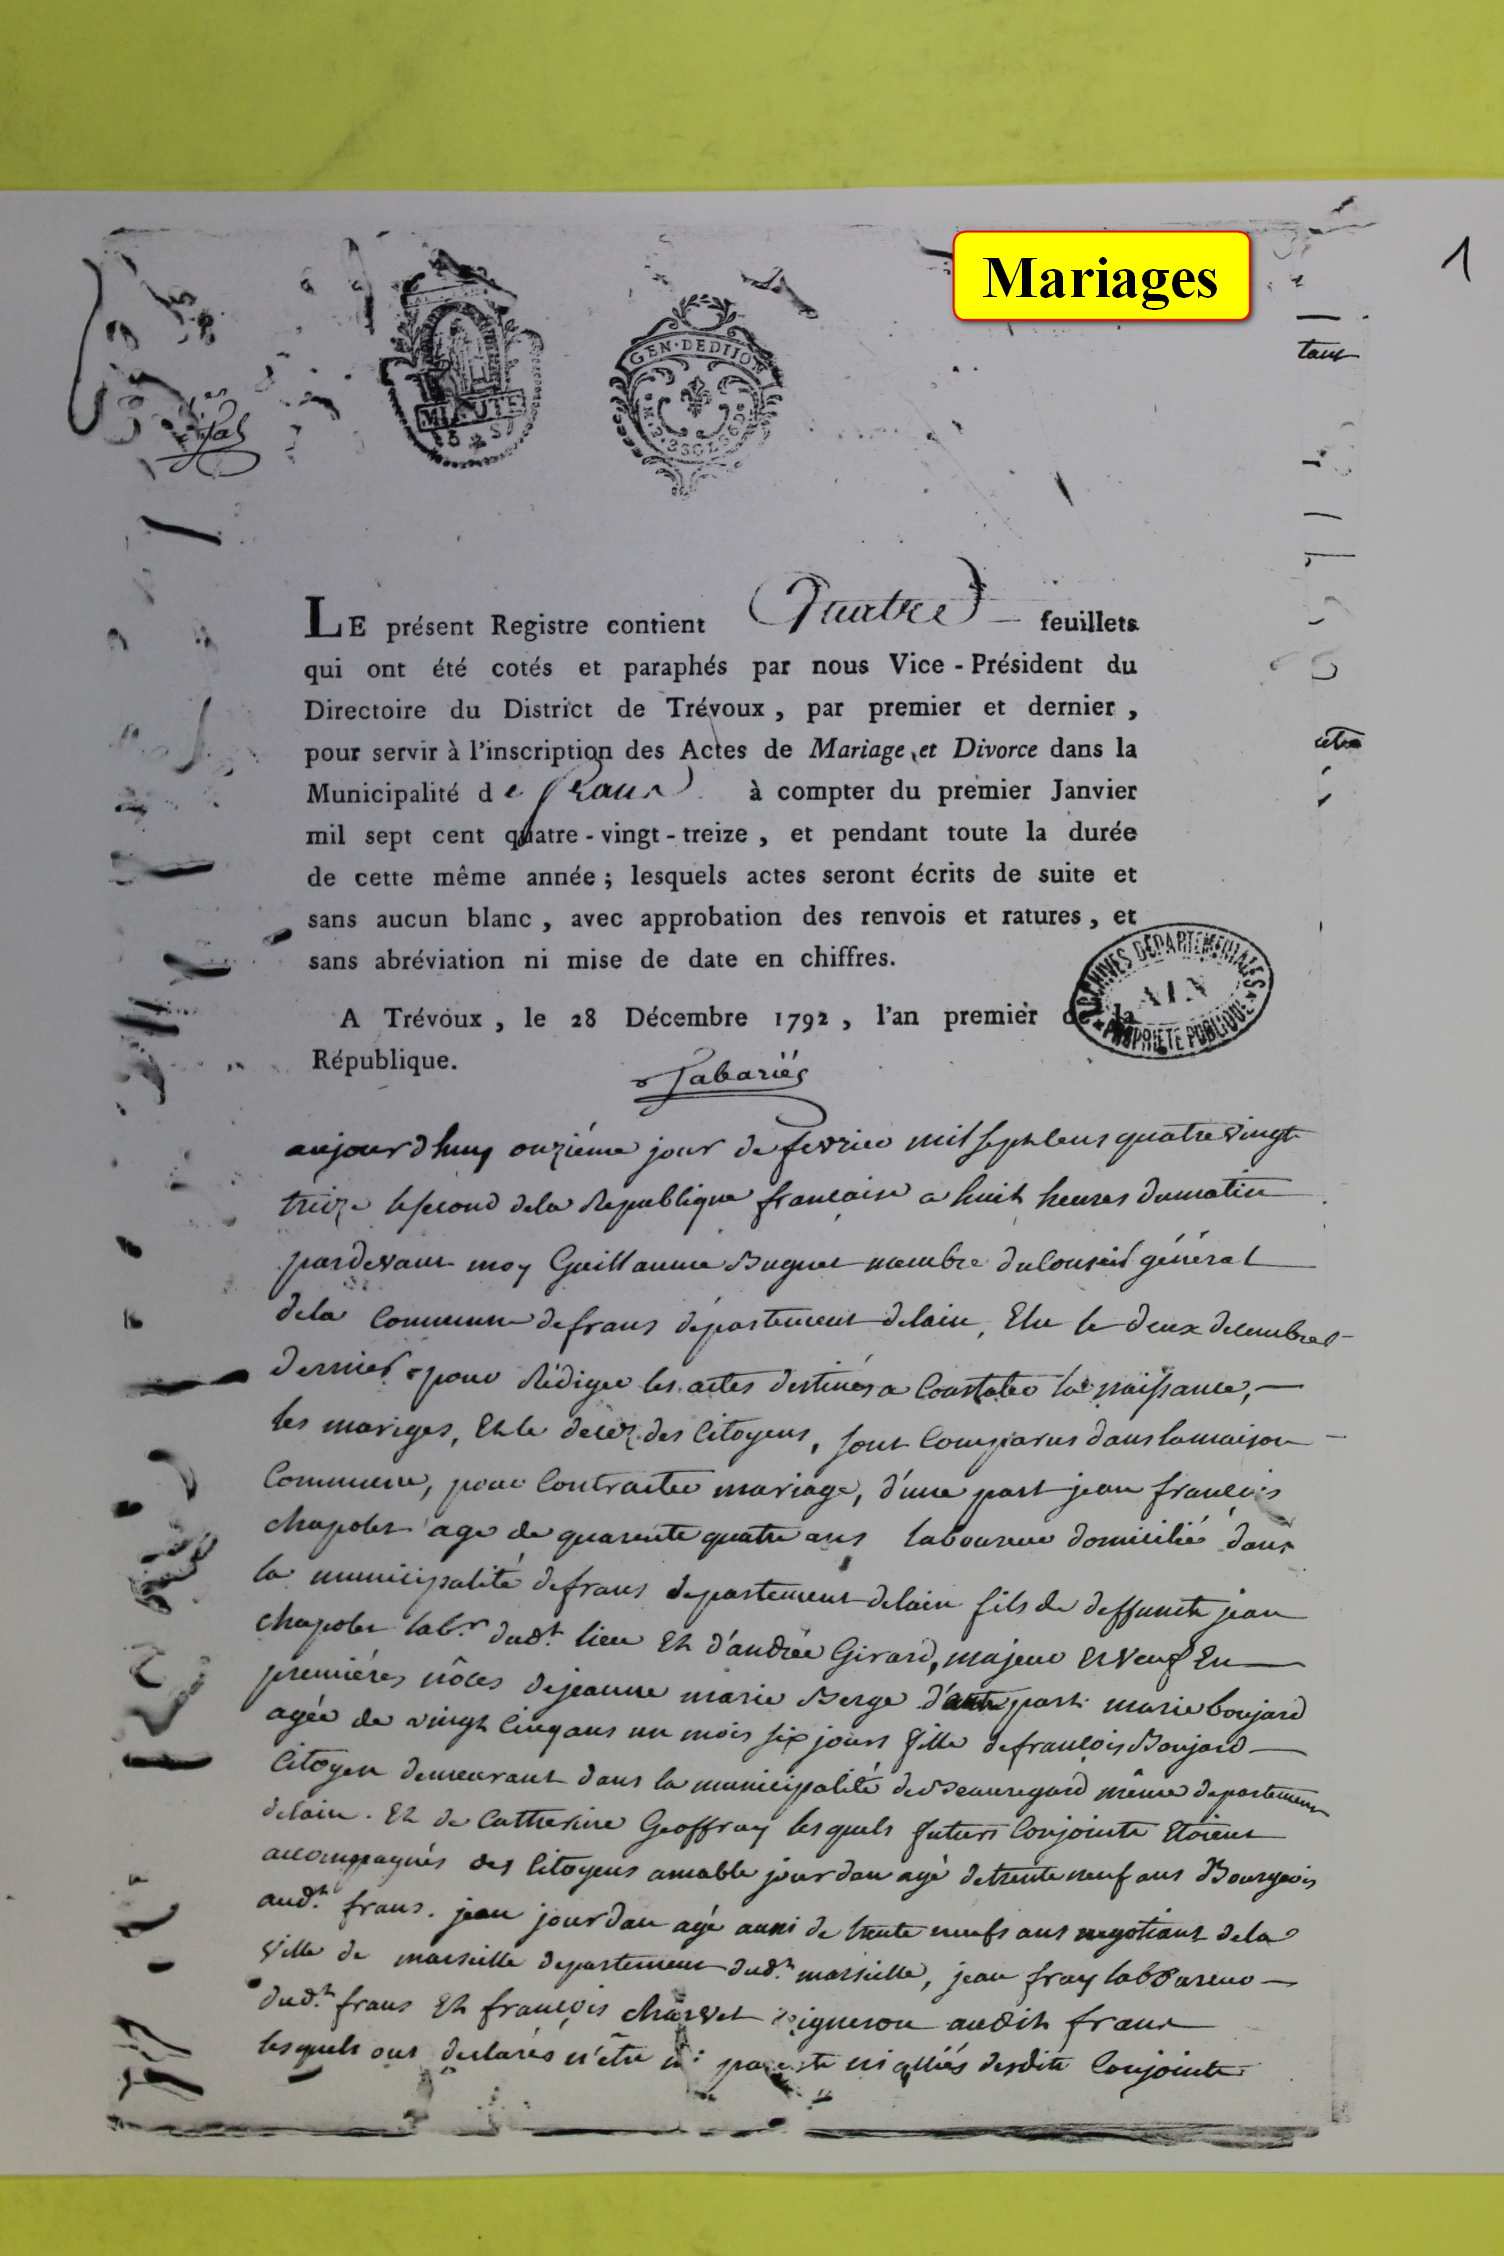 Mariages
1
MINUTE
GEN. DE DIJON
tant
LE présent Registre contient Quatre feuillets
qui ont été cotés et paraphés par nous Vice-Président du
Directoire du District de Trévoux, par premier et dernier,
pour servir à l'inscription des Actes de Mariage et Divorce dans la
Municipalité de frans à compter du premier Janvier
mil sept cent quatre-vingt-treize, et pendant toute la durée
de cette même année; lesquels actes seront écrits de suite et
sans aucun blanc, avec approbation des renvois et ratures, et
sans abréviation ni mise de date en chiffres.
ARCHIVES DÉPARTEMENTALES AIN PROPRIETE PUBLIQUE
A Trévoux, le 28 Décembre 1792, l'an premier de la
République.
Tabariés
aujourdhuy onziéme jour de fevrier mil sept cens quatre vingt
treize le second dela Republique francaise a huit heures du matin
pardevant moy Guillaume Buguet membre du Conseil général
dela Commune de frans département delain, Elu le deux decembre
dernier pour Rédiger les actes destinés a Constater la naissance,
les mariges, Et le decez des Citoyens, sont Comparus dans la maison
Commune, pour Contracter mariage, d'une part jean françois
chapolet age de quarente quatre ans laboureur domicilié dans
la municipalité de frans departement delain fils de deffunct jean
chapolet lab.r dud.t lieu Et d'andrée Girard, majeur et veuf En
premiéres nôces de jeanne marie Berge d'autre part marie boujard
agée de vingt Cinq ans un mois six jours fille de françois Boujard
Citoyen demeurant dans la municipalité de Beauregard même departement
delain. Et de Catherine Geoffray lesquels futurs Conjoints Etoient
accompagnés des Citoyens amable jourdan agé de trente neuf ans Bourgeois
aud.t frans. jean jourdan agé aussi de trente neufs ans negotiant dela
ville de marseille departement dud.t marseille, jean fray laboureur
dud.t frans Et françois charvet vigneron audit frans
lesquels ont declarés n'être ni parents ni alliés desdits Conjoints